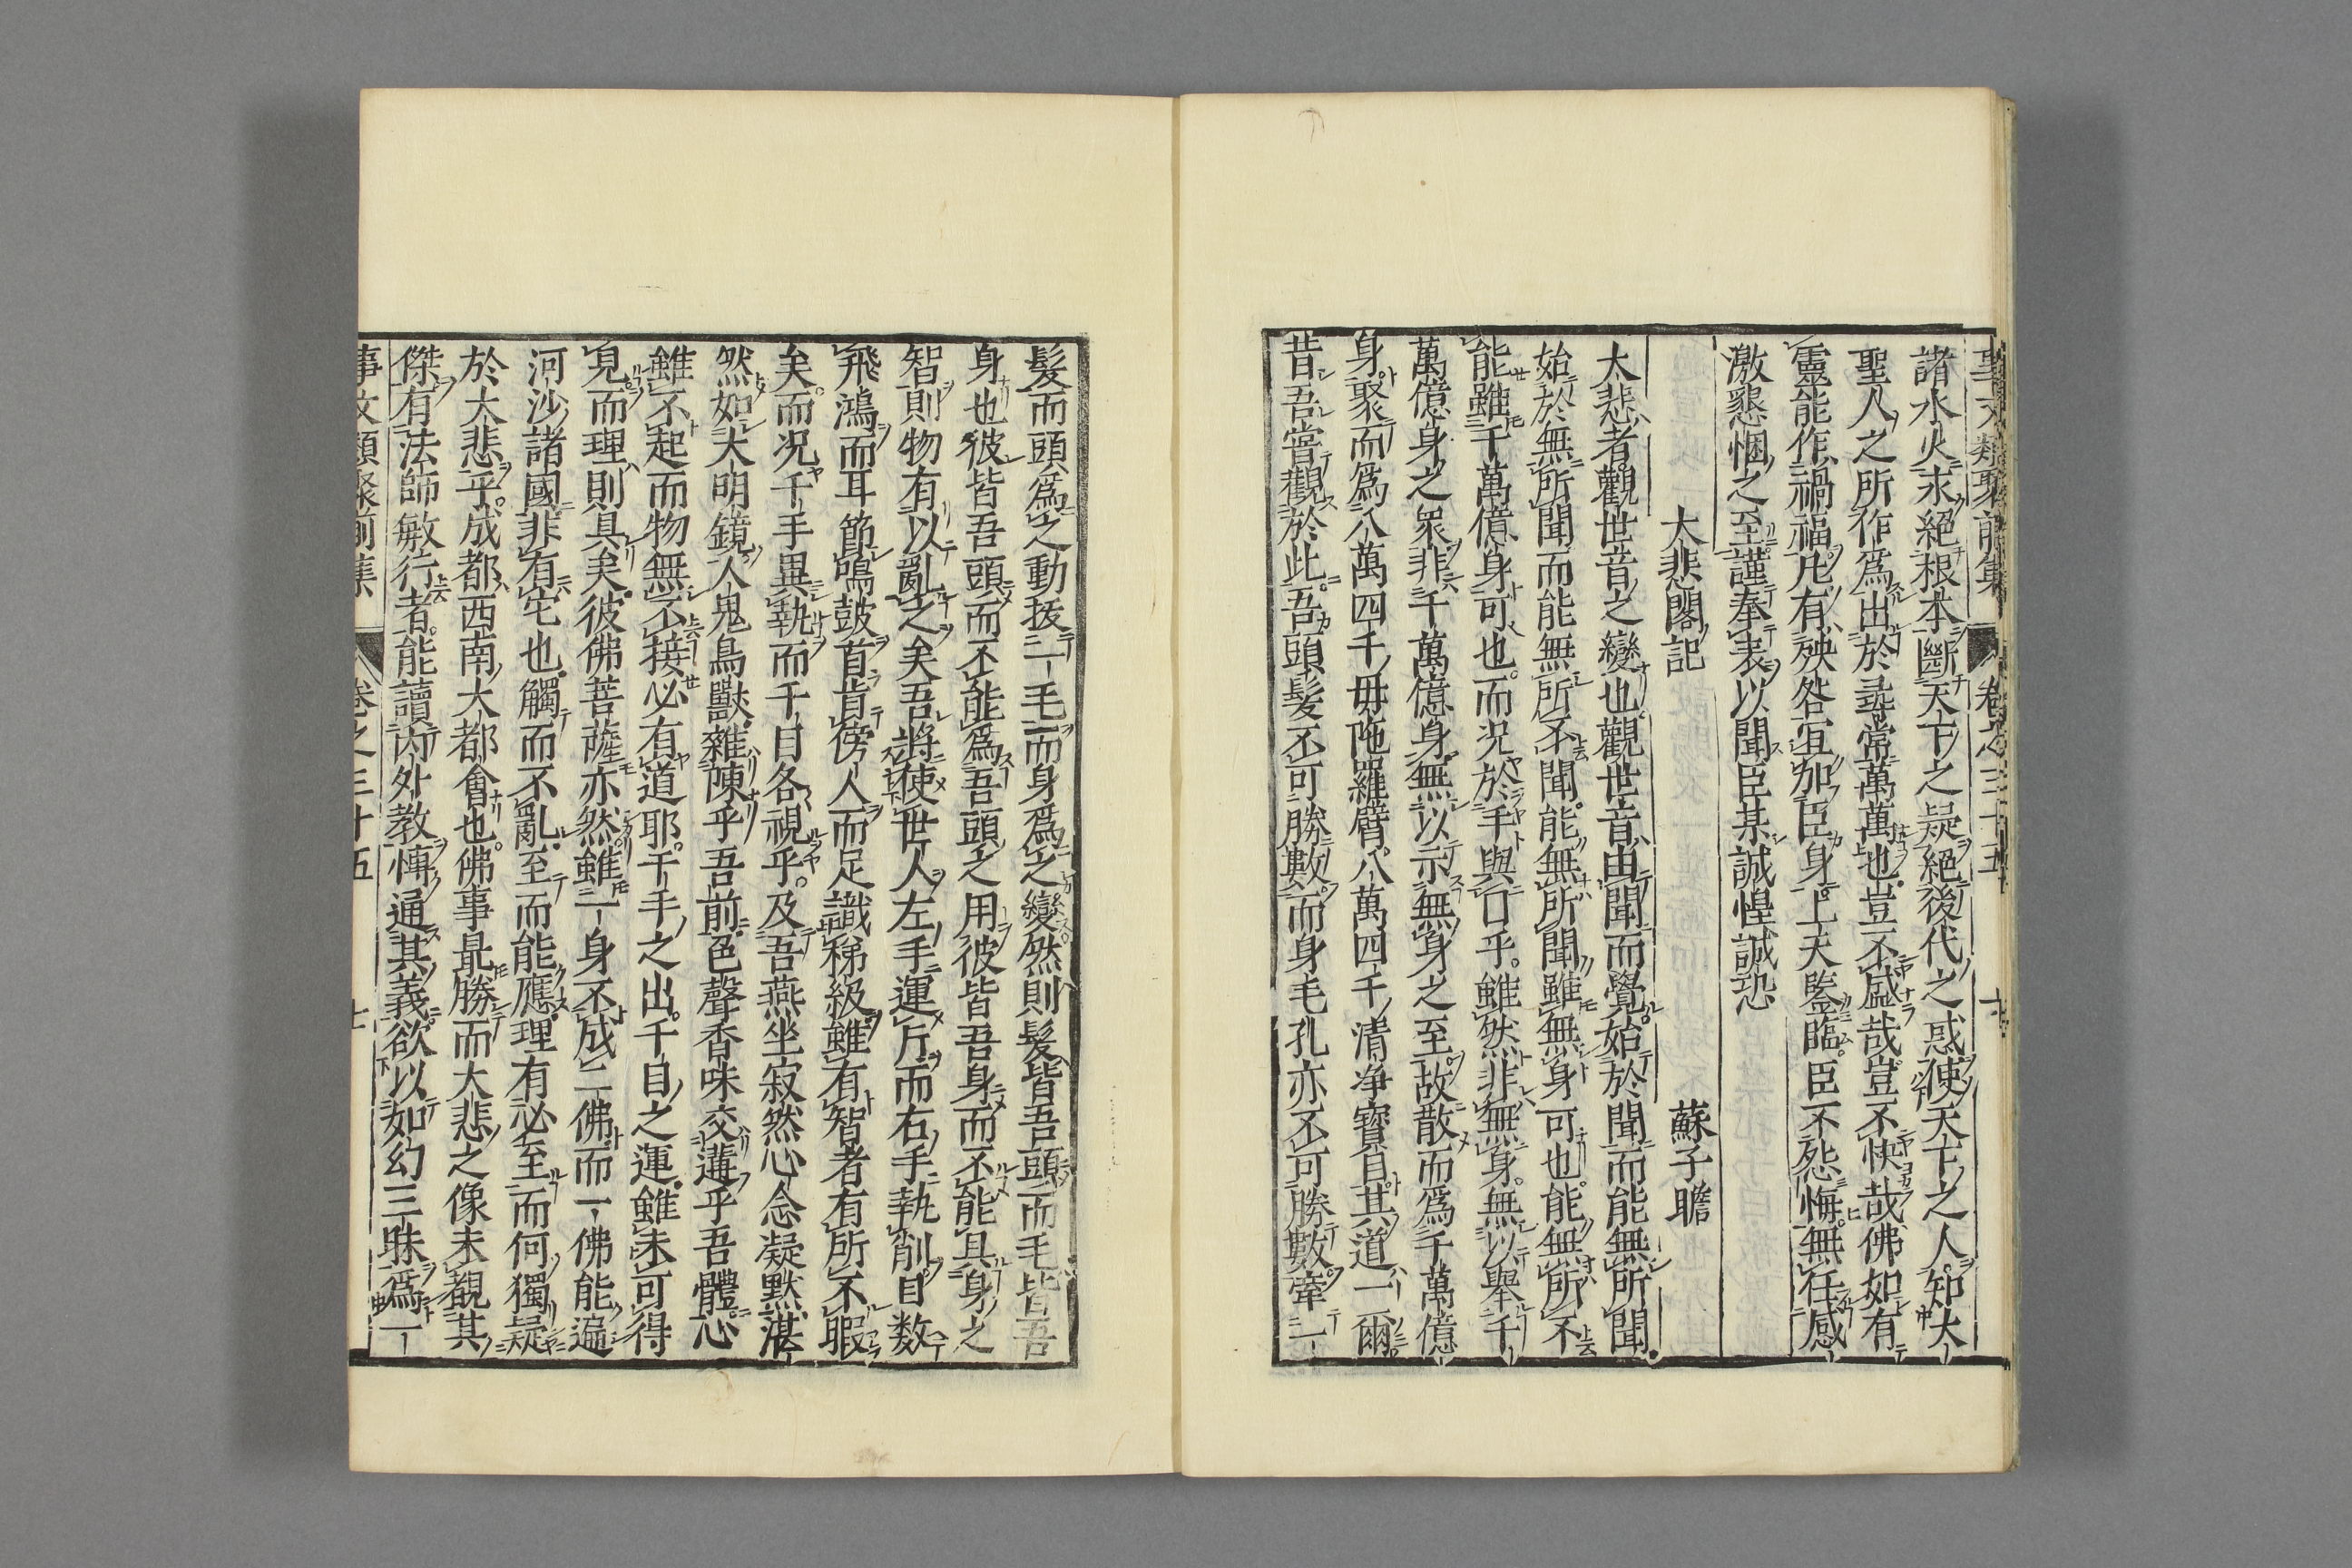 諸水火永絕根本斷天下之疑絕後代之惑使天下之人知大
聖人之所作爲出於尋常萬萬也豈不盛哉豈不快哉佛如有
靈能作禍福凡有殃咎宜加臣身上天鑒臨臣不怨悔無任感
激懇悃之至謹奉表以聞臣某誠惶誠恐
大悲閣記 蘇子瞻
大悲者觀世音之變也觀世音由聞而覺始於聞而能無所聞
始於無所聞而能無所不聞能無所聞雖無身可也能無所不
能雖千萬億身可也而况於手與目乎雖然非無身無以舉千
萬億身之衆非千萬億身無以示無身之至故散而爲千萬億
身聚而爲八萬四千母陁羅臂八萬四千清净寳目其道一爾
昔吾嘗觀於此吾頭髮不可勝數而身毛孔亦不可勝數牽一
髮而頭爲之動拔一毛而身爲之變然則髮皆吾頭而毛皆吾
身也彼皆吾頭而不能爲吾頭之用彼皆吾身而不能具身之
智則物有以亂之矣吾將使世人左手運斤而右手執削目数
飛鴻而耳節鳴鼓首肯傍人而足識梯級雖有智者有所不暇
矣而况千手異執而千目各視乎及吾燕坐寂然心念凝默湛
然如大明鏡人鬼鳥獸雜陳乎吾前色聲香味交遘乎吾體心
雖不起而物無不接必有道耶千手之出千目之運雖未可得
見而理則具矣彼佛菩薩亦然雖一身不成二佛而一佛能遍
河沙諸國非有它也觸而不亂至而能應理有必至而何獨疑
於大悲乎成都西南大都會也佛事最勝而大悲之像未覩其
傑有法師敏行者能讀内外教博通其義欲以如幻三昧爲一
事文類聚前集 卷之三十五